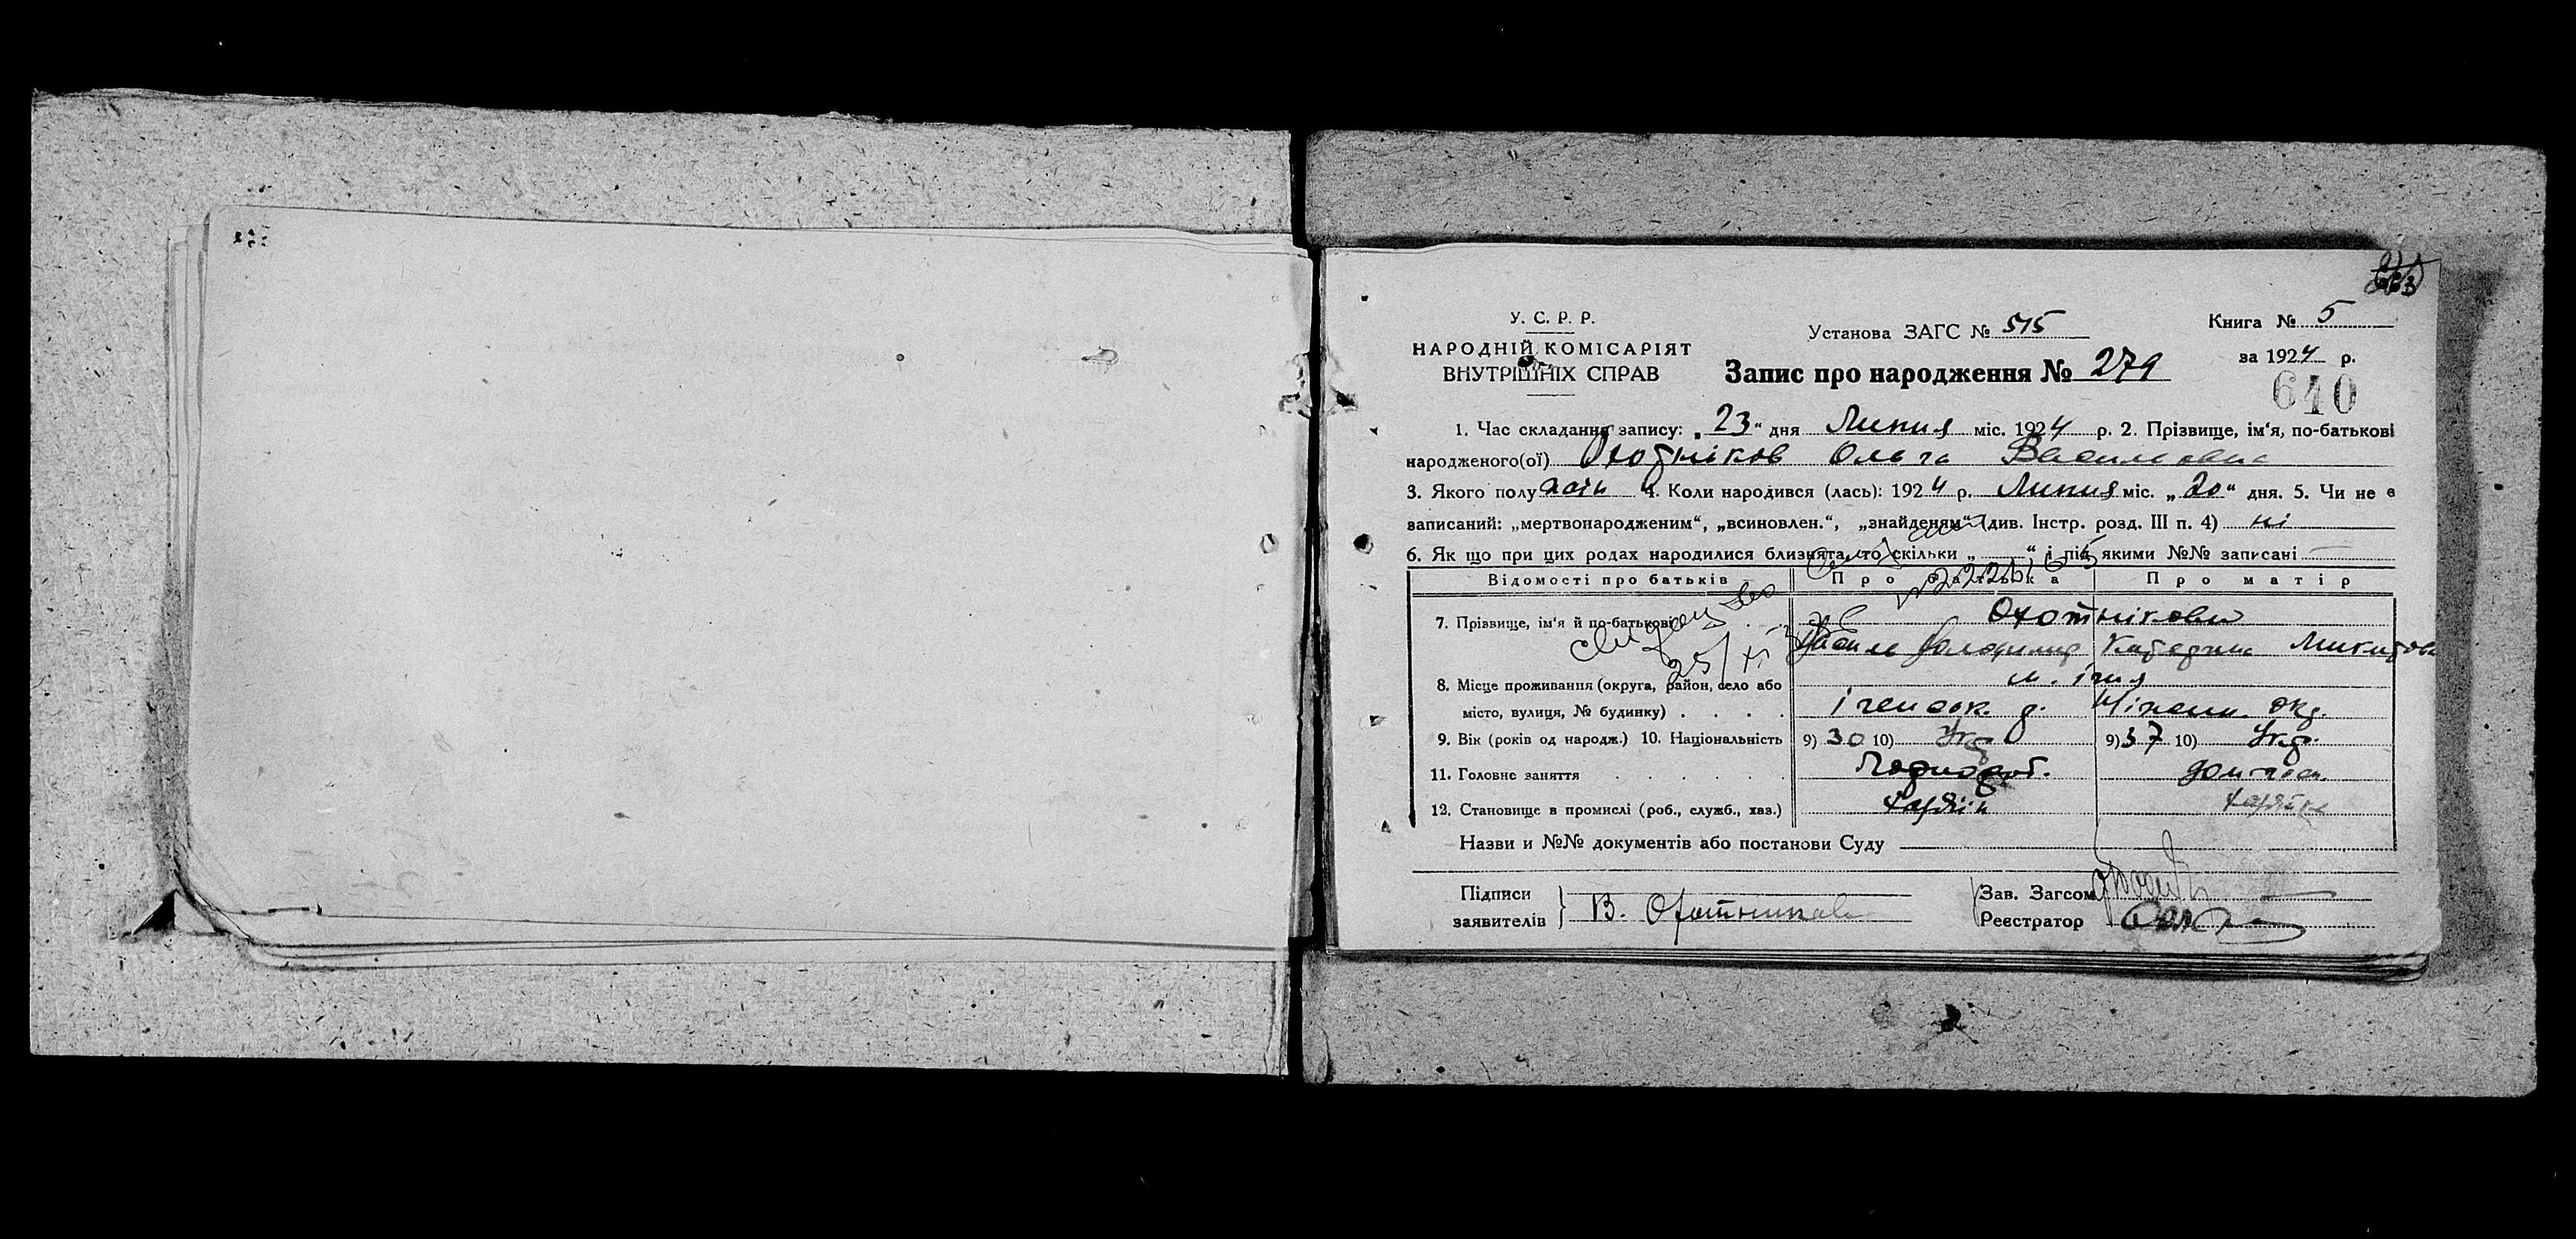 У. С. Р. Р.
НАРОДНІЙ КОМІСАРІЯТ
ВНУТРІШНІХ СПРАВ
Установа ЗАГС № 515
Запис про народження № 279
Книга № 5
за 1924 р.
610
1. Час складання запису: „23“ дня Липня міс. 1924 р. 2. Прізвище, ім'я, по-батькові
народженого(ої) Охотніков Ольга Василовна
3. Якого полу жін 4. Коли народився (лась): 1924 р. Липня міс. „20“ дня. 5. Чи не є
записаний: „мертвонародженим“, „всиновлен.“, „знайденям“ (див. Інстр. розд. III п. 4) ні
6. Як що при цих родах народилися близнята, то скільки „ “ і під якими №№ записані
Відомості про батьків Про батька Про матір
7. Прізвище, ім'я й по-батькові Охотнікови
Василь Володимир Катерина Микитовн
8. Місце проживання (округа, район, село або м. Ічня
місто, вулиця, № будинку) Іченськ. р. Ніженн. окр.
9. Вік (років од народж.) 10. Національність 9) 30 10) Укр 9) 37 10) Укр.
11. Головне заняття Чорнороб. дом. госп.
12. Становище в промислі (роб., служб., хаз.)
Назви и №№ документів або постанови Суду
Підписи
заявителів В. Охотников
Зав. Загсом
Реєстратор